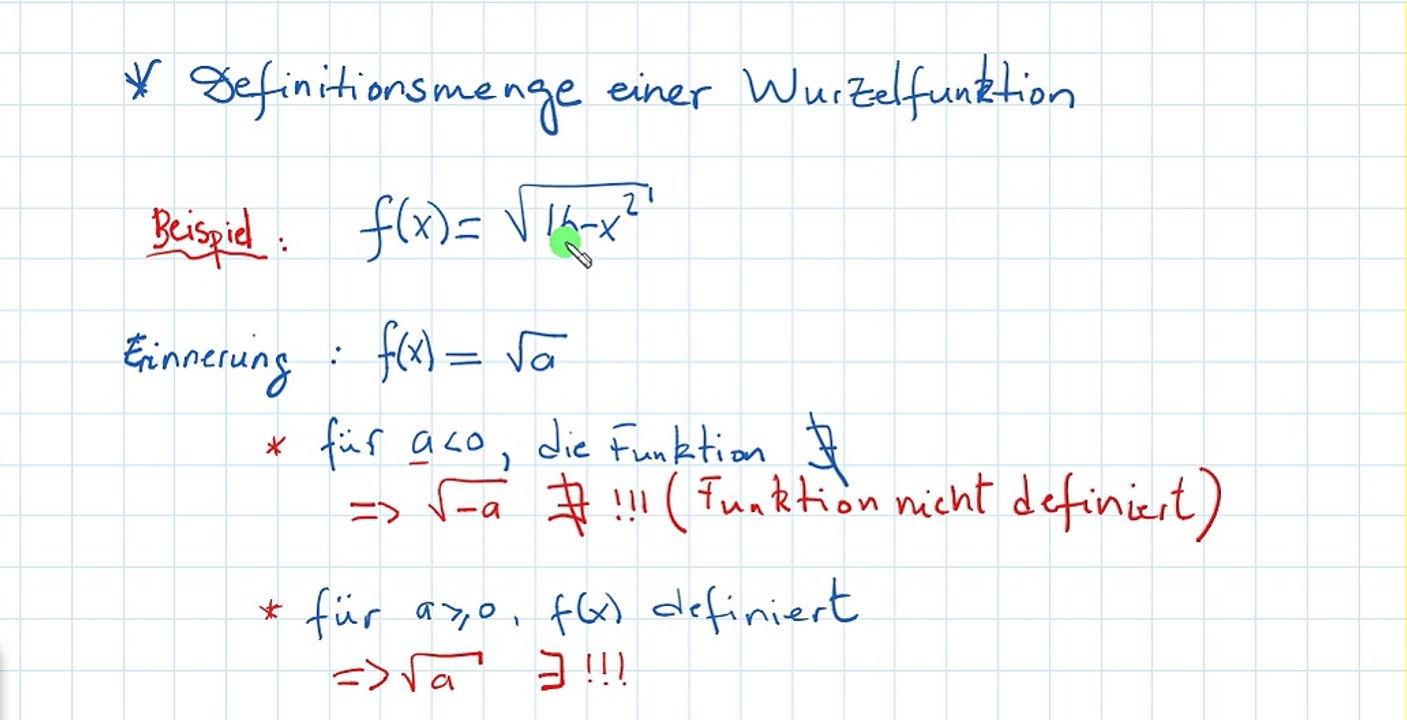 * Definitionsmenge einer Wurzelfunktion
Beispiel : f(x) = √(16-x²)
Erinnerung : f(x) = √a
* für a<0, die Funktion ∄
=> √-a ∄ !!! (Funktion nicht definiert)
* für a≥0, f(x) definiert
=> √a ∃ !!!